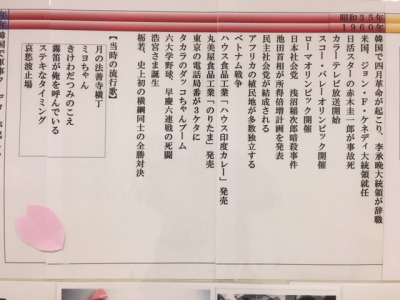 昭和35年
1960年
韓国で四月革命が起こり、李承晩大統領が辞職
米国、ジョン・F・ケネディ大統領就任
日活スターの赤木圭一郎が事故死
カラーテレビ放送開始
スコーバレーオリンピック開催
ローマオリンピック開催
日本社会党 浅沼稲次郎暗殺事件
池田首相が所得倍増計画を発表
民主社会党が結成される
アフリカの植民地が多数独立する
ベトナム戦争
ハウス食品工業「ハウス印度カレー」発売
丸美屋食品工業「のりたま」発売
東京の電話局番が3ケタに
タカラのダッコちゃんブーム
六大学野球、早慶六連戦の死闘
浩宮さま誕生
栃若、史上初の横綱同士の全勝対決
【当時の流行歌】
月の法善寺横丁
ミヨちゃん
きけわだつみのこえ
霧笛が俺を呼んでいる
ステキなタイミング
哀愁波止場